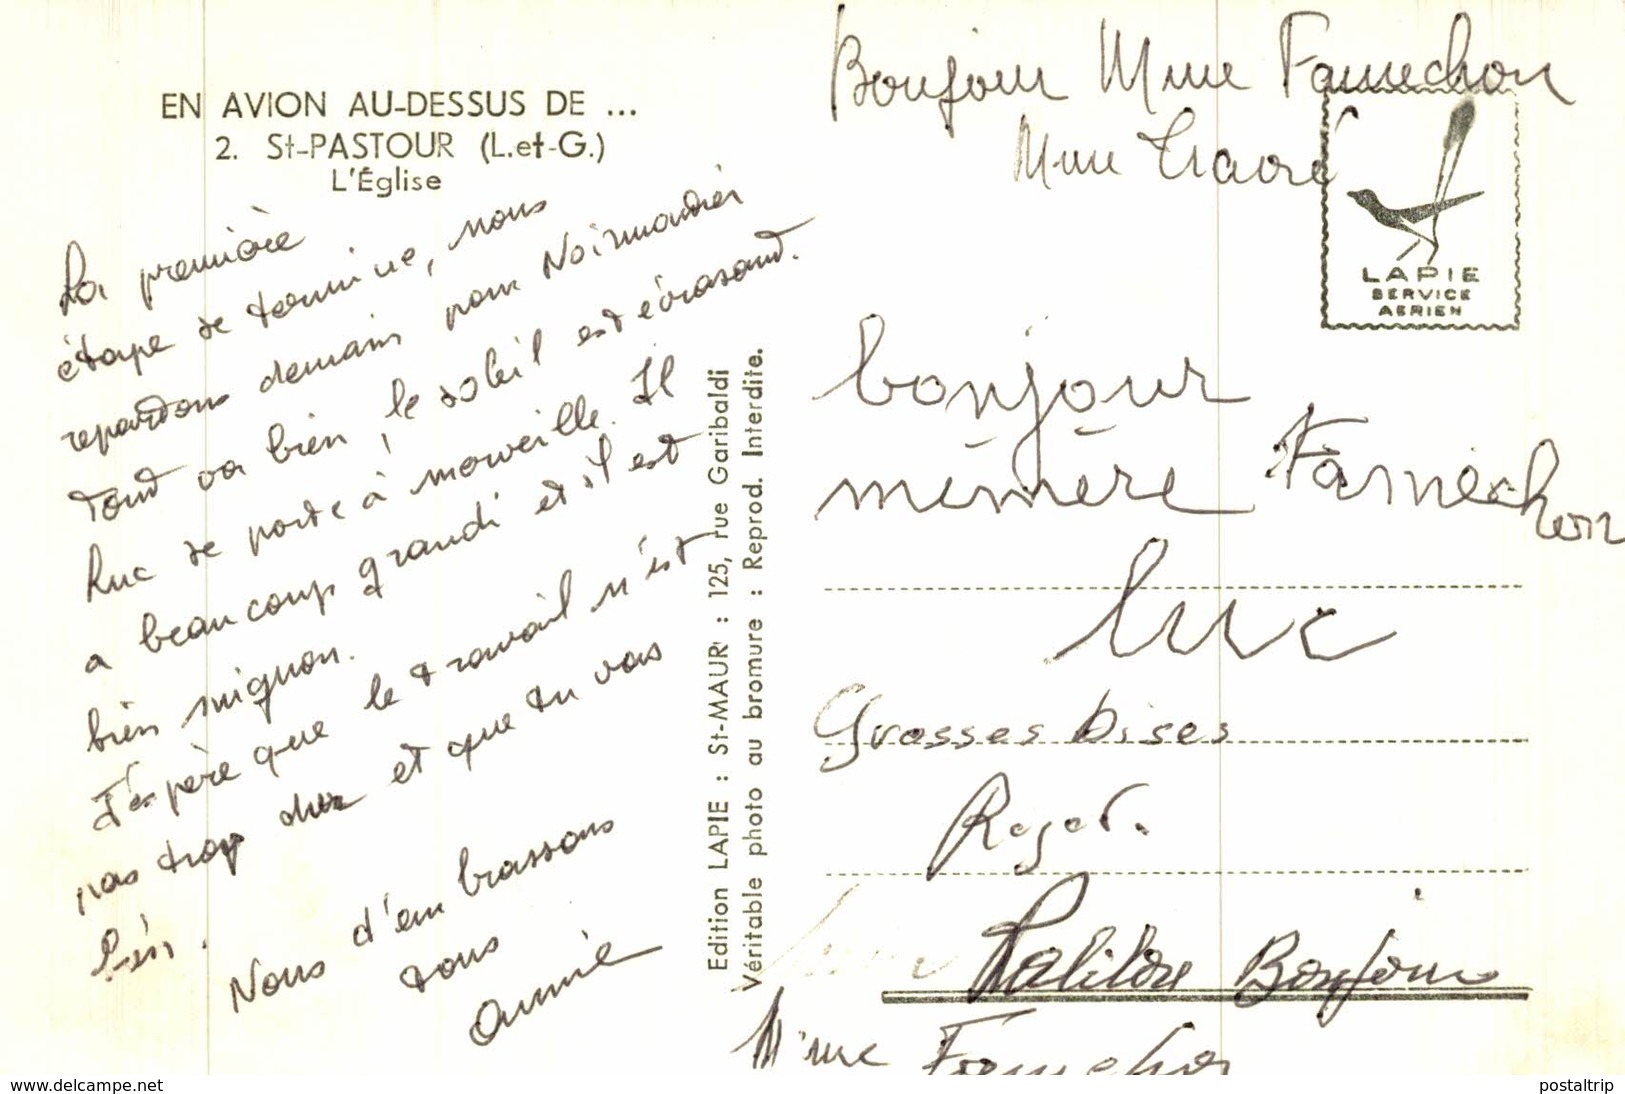 EN AVION AU-DESSUS DE ...
2. St-PASTOUR (L.et-G.)
L'Église
La première
étape se termine, nous
repartons demain pour Noirmoutier
Tout va bien, le soleil est écrasant.
Luc se porte à merveille. Il
a beaucoup grandi et il est
bien mignon.
J'espère que le travail n'est
pas trop dur et que tu vas
bien.
Nous t'embrassons
tous
Annie
Edition LAPIE : St-MAUR : 125, rue Garibaldi
Véritable photo au bromure : Reprod. Interdite.
Bonjour Mme Famechon
Mme Traoré
LAPIE
SERVICE
AERIEN
bonjour
mémère Famechon
luc
Grosses bises
Roger.
Bonjour
Mme Famechon
delcampe.net
postaltrip